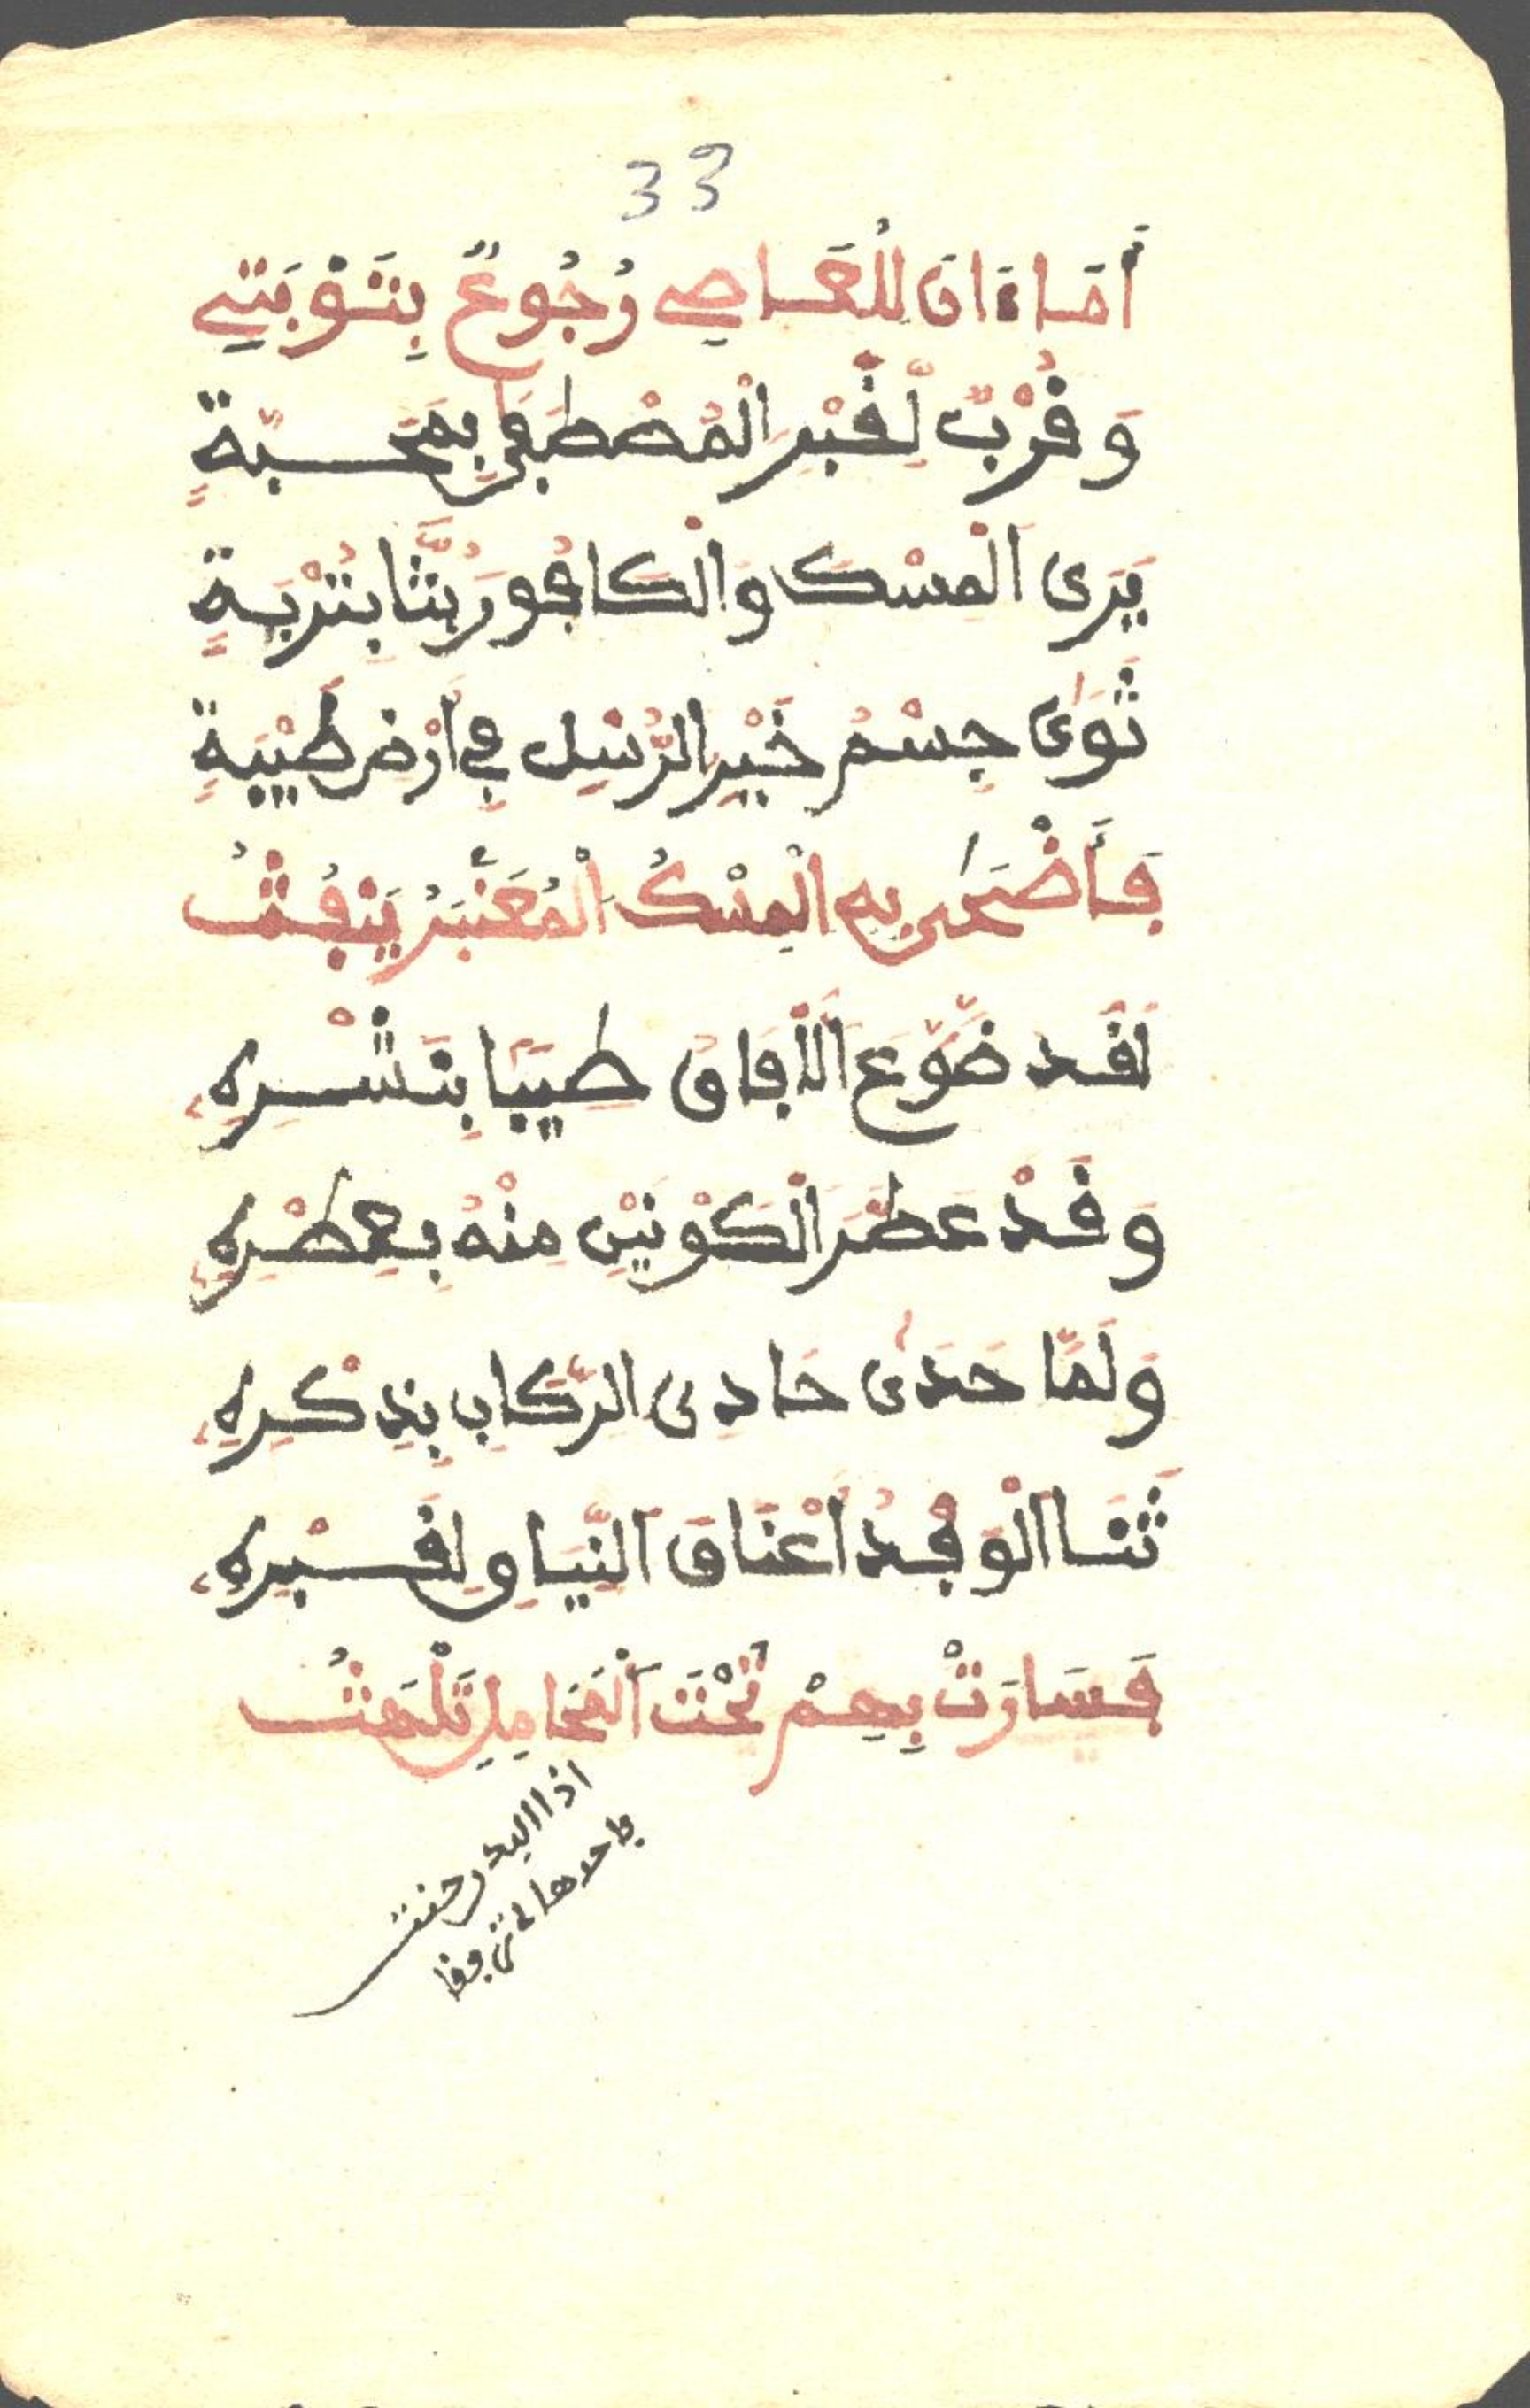 33
أَمَا ءَانَ لِلْعَاصِي رُجُوعٌ بِتَوْبَتِي
وَقُرْبٌ لِقَبْرِ الْمُصْطَفَى بِمَحَبَّةٍ
يَرَى الْمِسْكَ وَالْكَافُورَ بُثَّا بِتُرْبَةٍ
ثَوَى جِسْمُ خَيْرِ الرُّسْلِ فِي أَرْضِ طَيْبَةٍ
فَأَضْحَى بِهِ الْمِسْكُ الْمُعَنْبَرُ يَنْفُثُ
لَقَد ضَوَّعَ الَافَاقَ طِيبًا بِنَشْرِهِ
وَقَدْ عَطَّرَ الْكَوْنَيْنِ مِنْهُ بِعِطْرِهِ
وَلَمَّا حَدَى حَادِي الرِّكَابِ بِذِكْرِهِ
ثَنَا الْوَفْدُ أَعْنَاقَ النِّيَاقِ لِقَبْرِهِ
فَسَارَتْ بِهِمْ تَحْتَ الْمَحَامِلِ تَلْهَثُ
اذا البدر